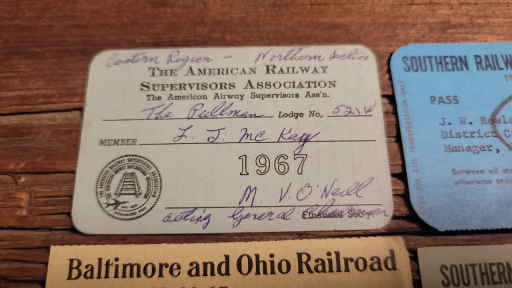 Eastern Region - Northern Section
THE AMERICAN RAILWAY
SUPERVISORS ASSOCIATION
The American Airway Supervisors Ass'n.
The Pullman Lodge No. 5214
MEMBER L. J. Mc Kay
1967
M V. O'Neill
acting General Chairman
SOUTHERN RAILW
PASS
J. W.
District
Manager,
Baltimore and Ohio Railroad
SOUTHERN